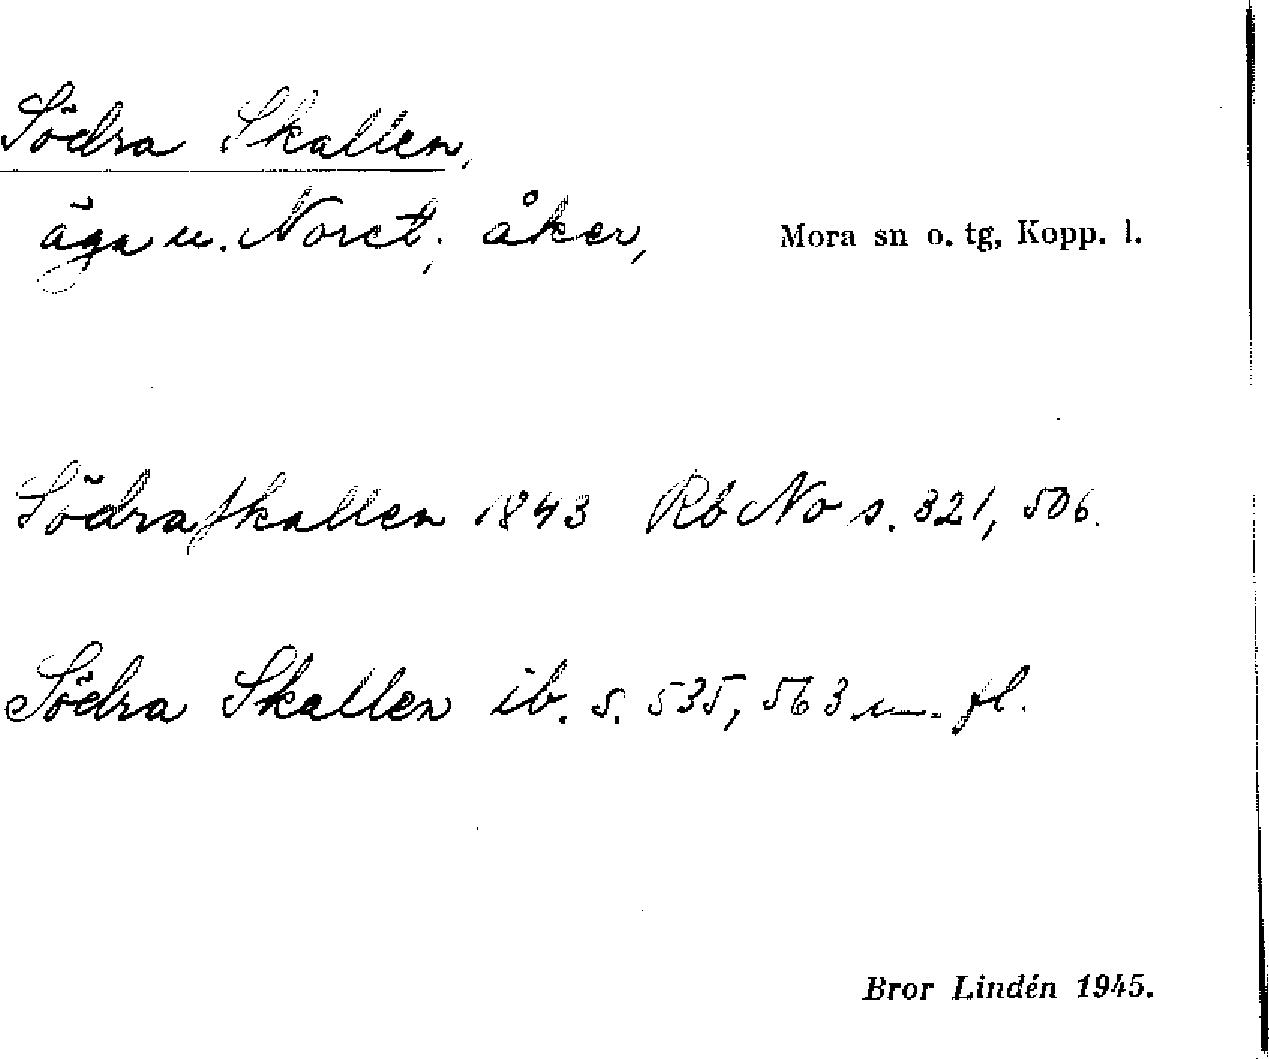 Södra Skallen,
äga u. Noret; åker, Mora sn o. tg, Kopp. l.
Södraskallen 1843 Rb No s. 321, 506.
Södra Skallen ib. s. 535, 563 m. fl.
Bror Lindén 1945.